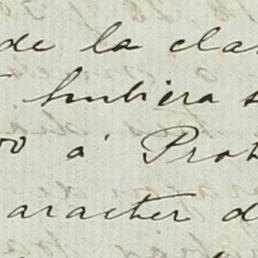 de la cla
hubiera s
á Prot
aracter d